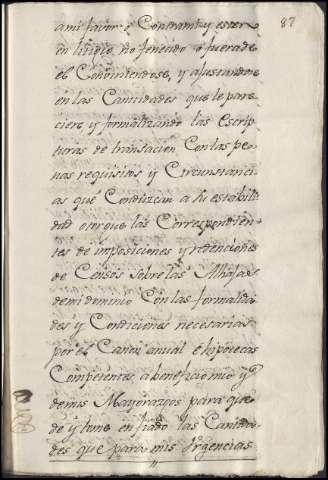 87
ami favor ó Contrami y esten
en litigio no fenecido ó fuera de
el Conviniendose, y ajustandose
en las Cantidades que le pare-
ciere y formalizando las Escrip-
turas de transacion Con las pe-
nas requisitos y Circunstanci-
as que Conduzcan a su estabili-
dad otorgue las Correspondien-
tes de imposiciones y redenciones
de Censos sobre las Alhajas
demi dominio Con las formalida-
des y Condiciones necesarias
por el Canon anual e hipotecas
Competentes a beneficio mio y
demis Mayorazgos para que
de y tome en fiado las Cantida-
des que para mis Urgencias